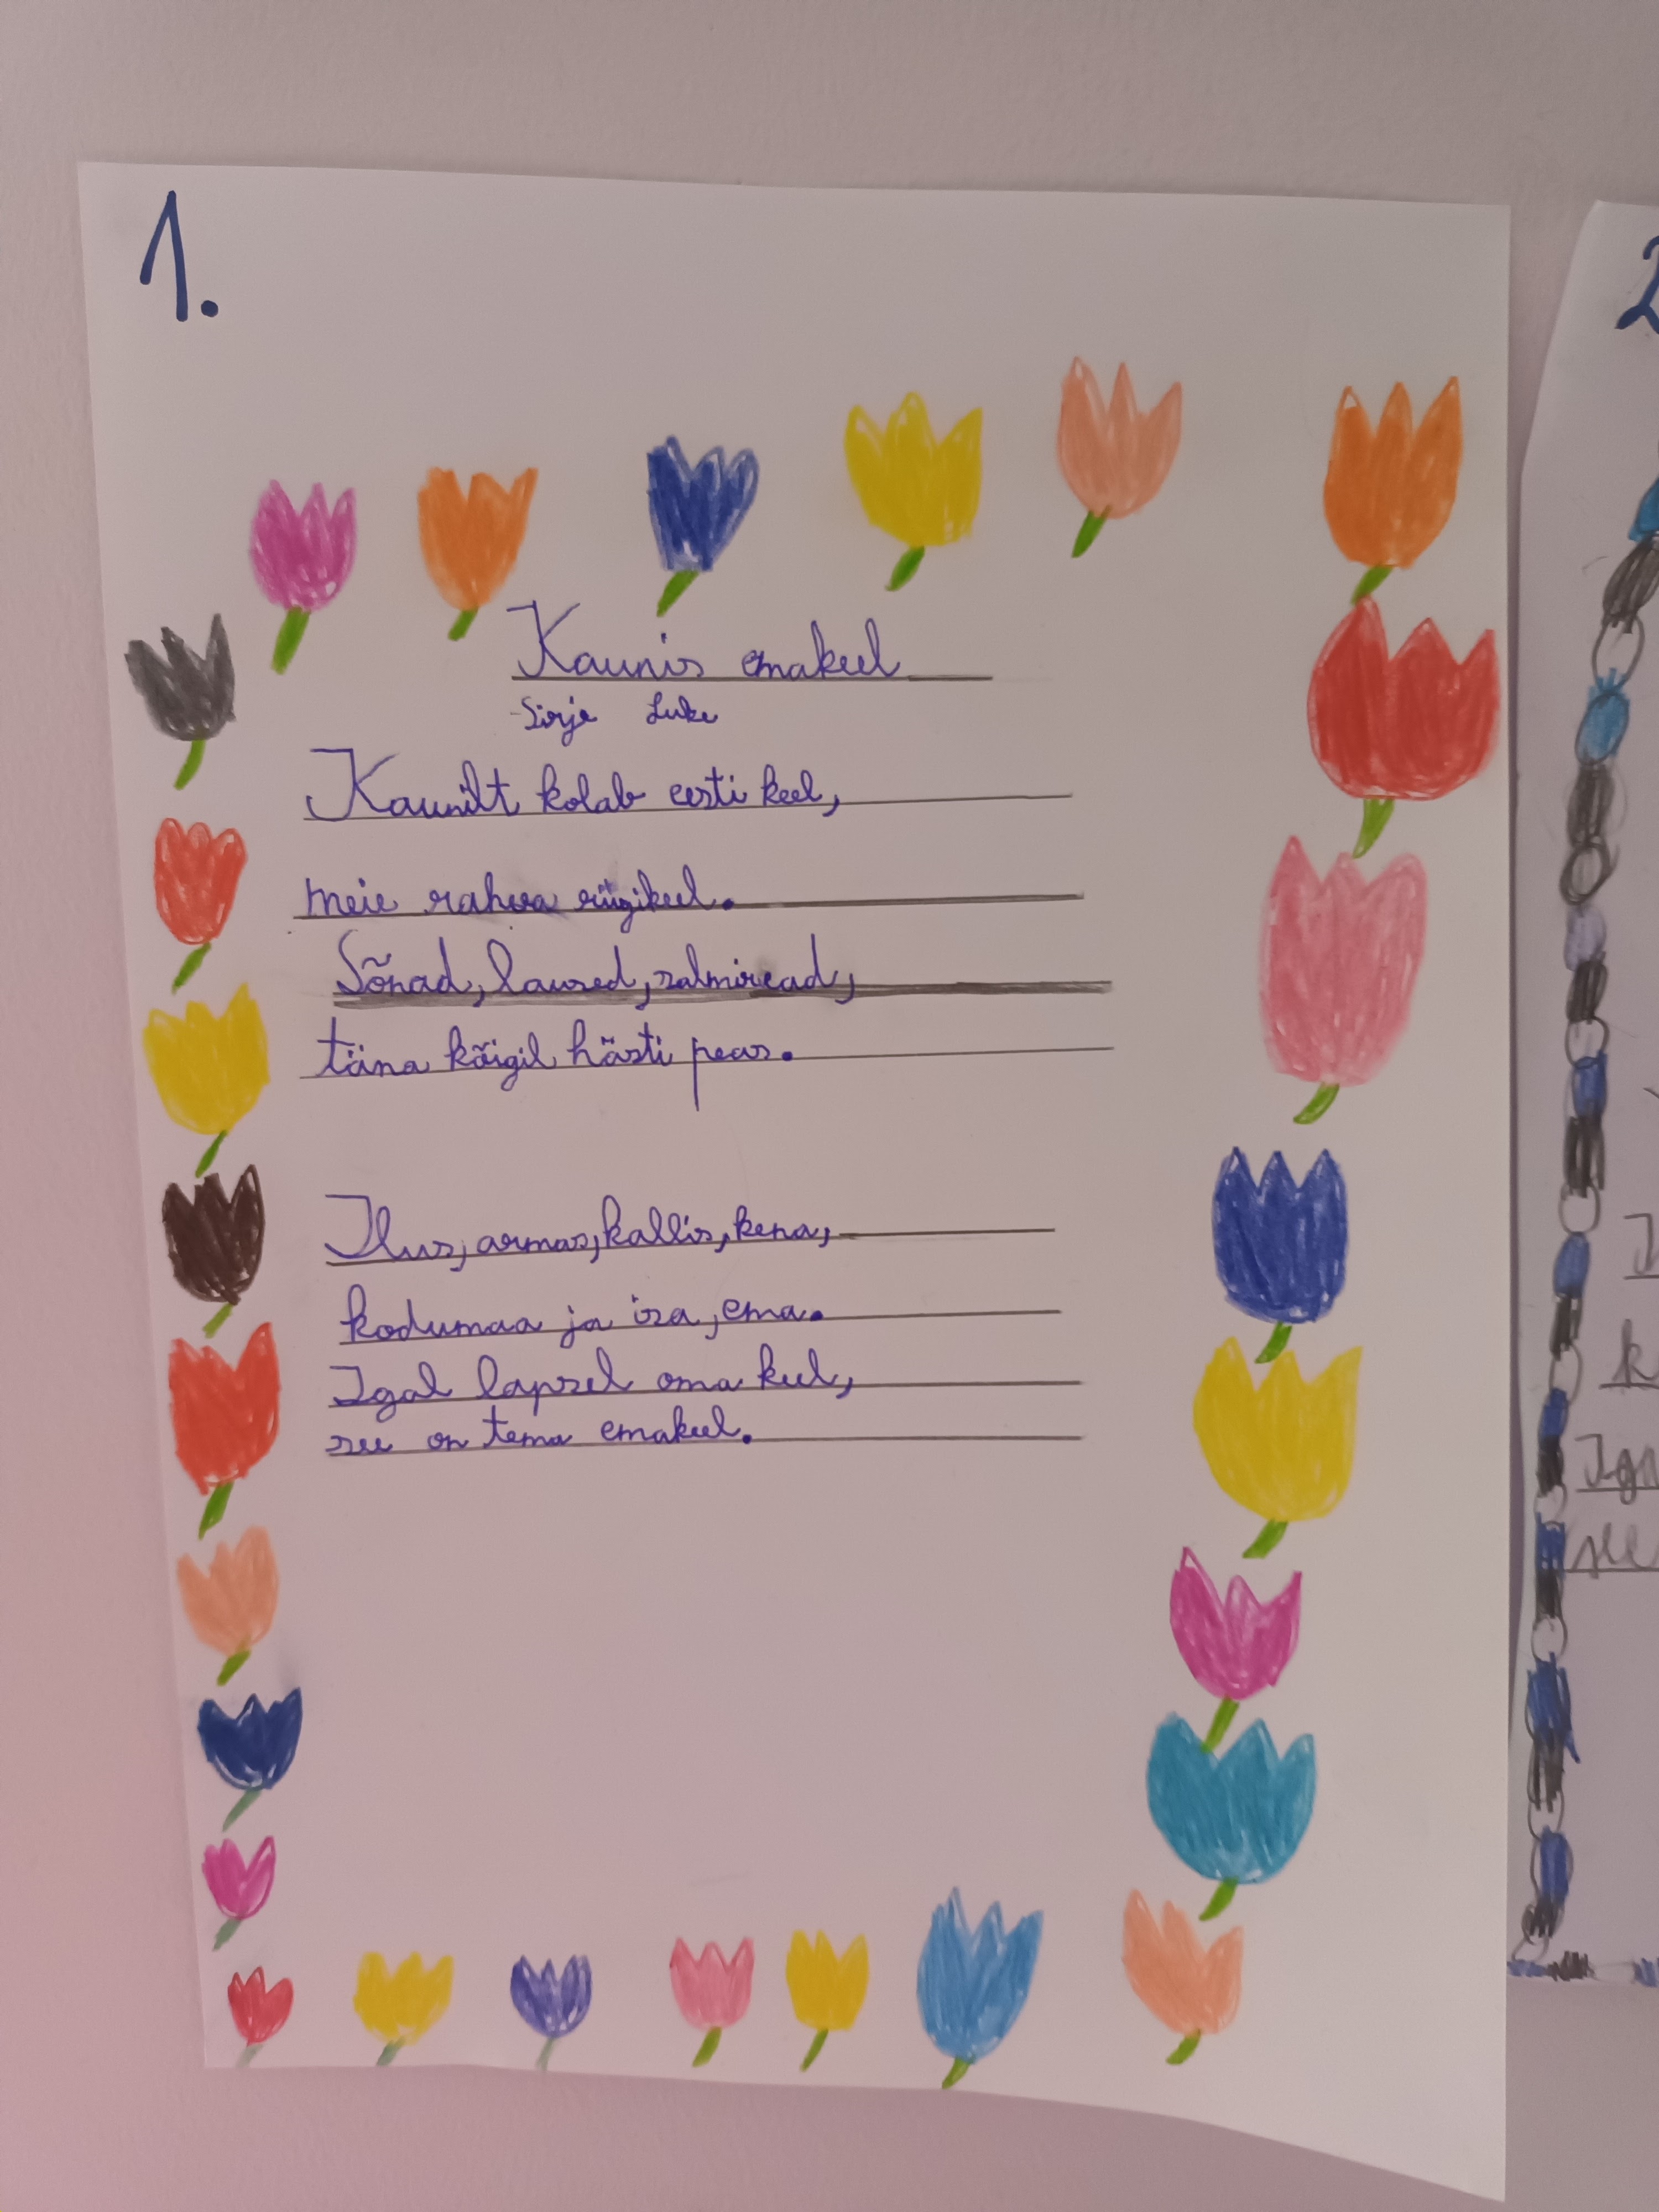 1.
Kaunis emakeel
Sirje Luke
Kaunilt kolab eesti keel,
meie rahva riigikeel.
Sõnad, laused, salmiread,
täna kõigil hästi peas.
Ilus, armas, kallis, kena,
kodumaa ja isa, ema.
Igal lapsel oma keel,
see on tema emakeel.
2